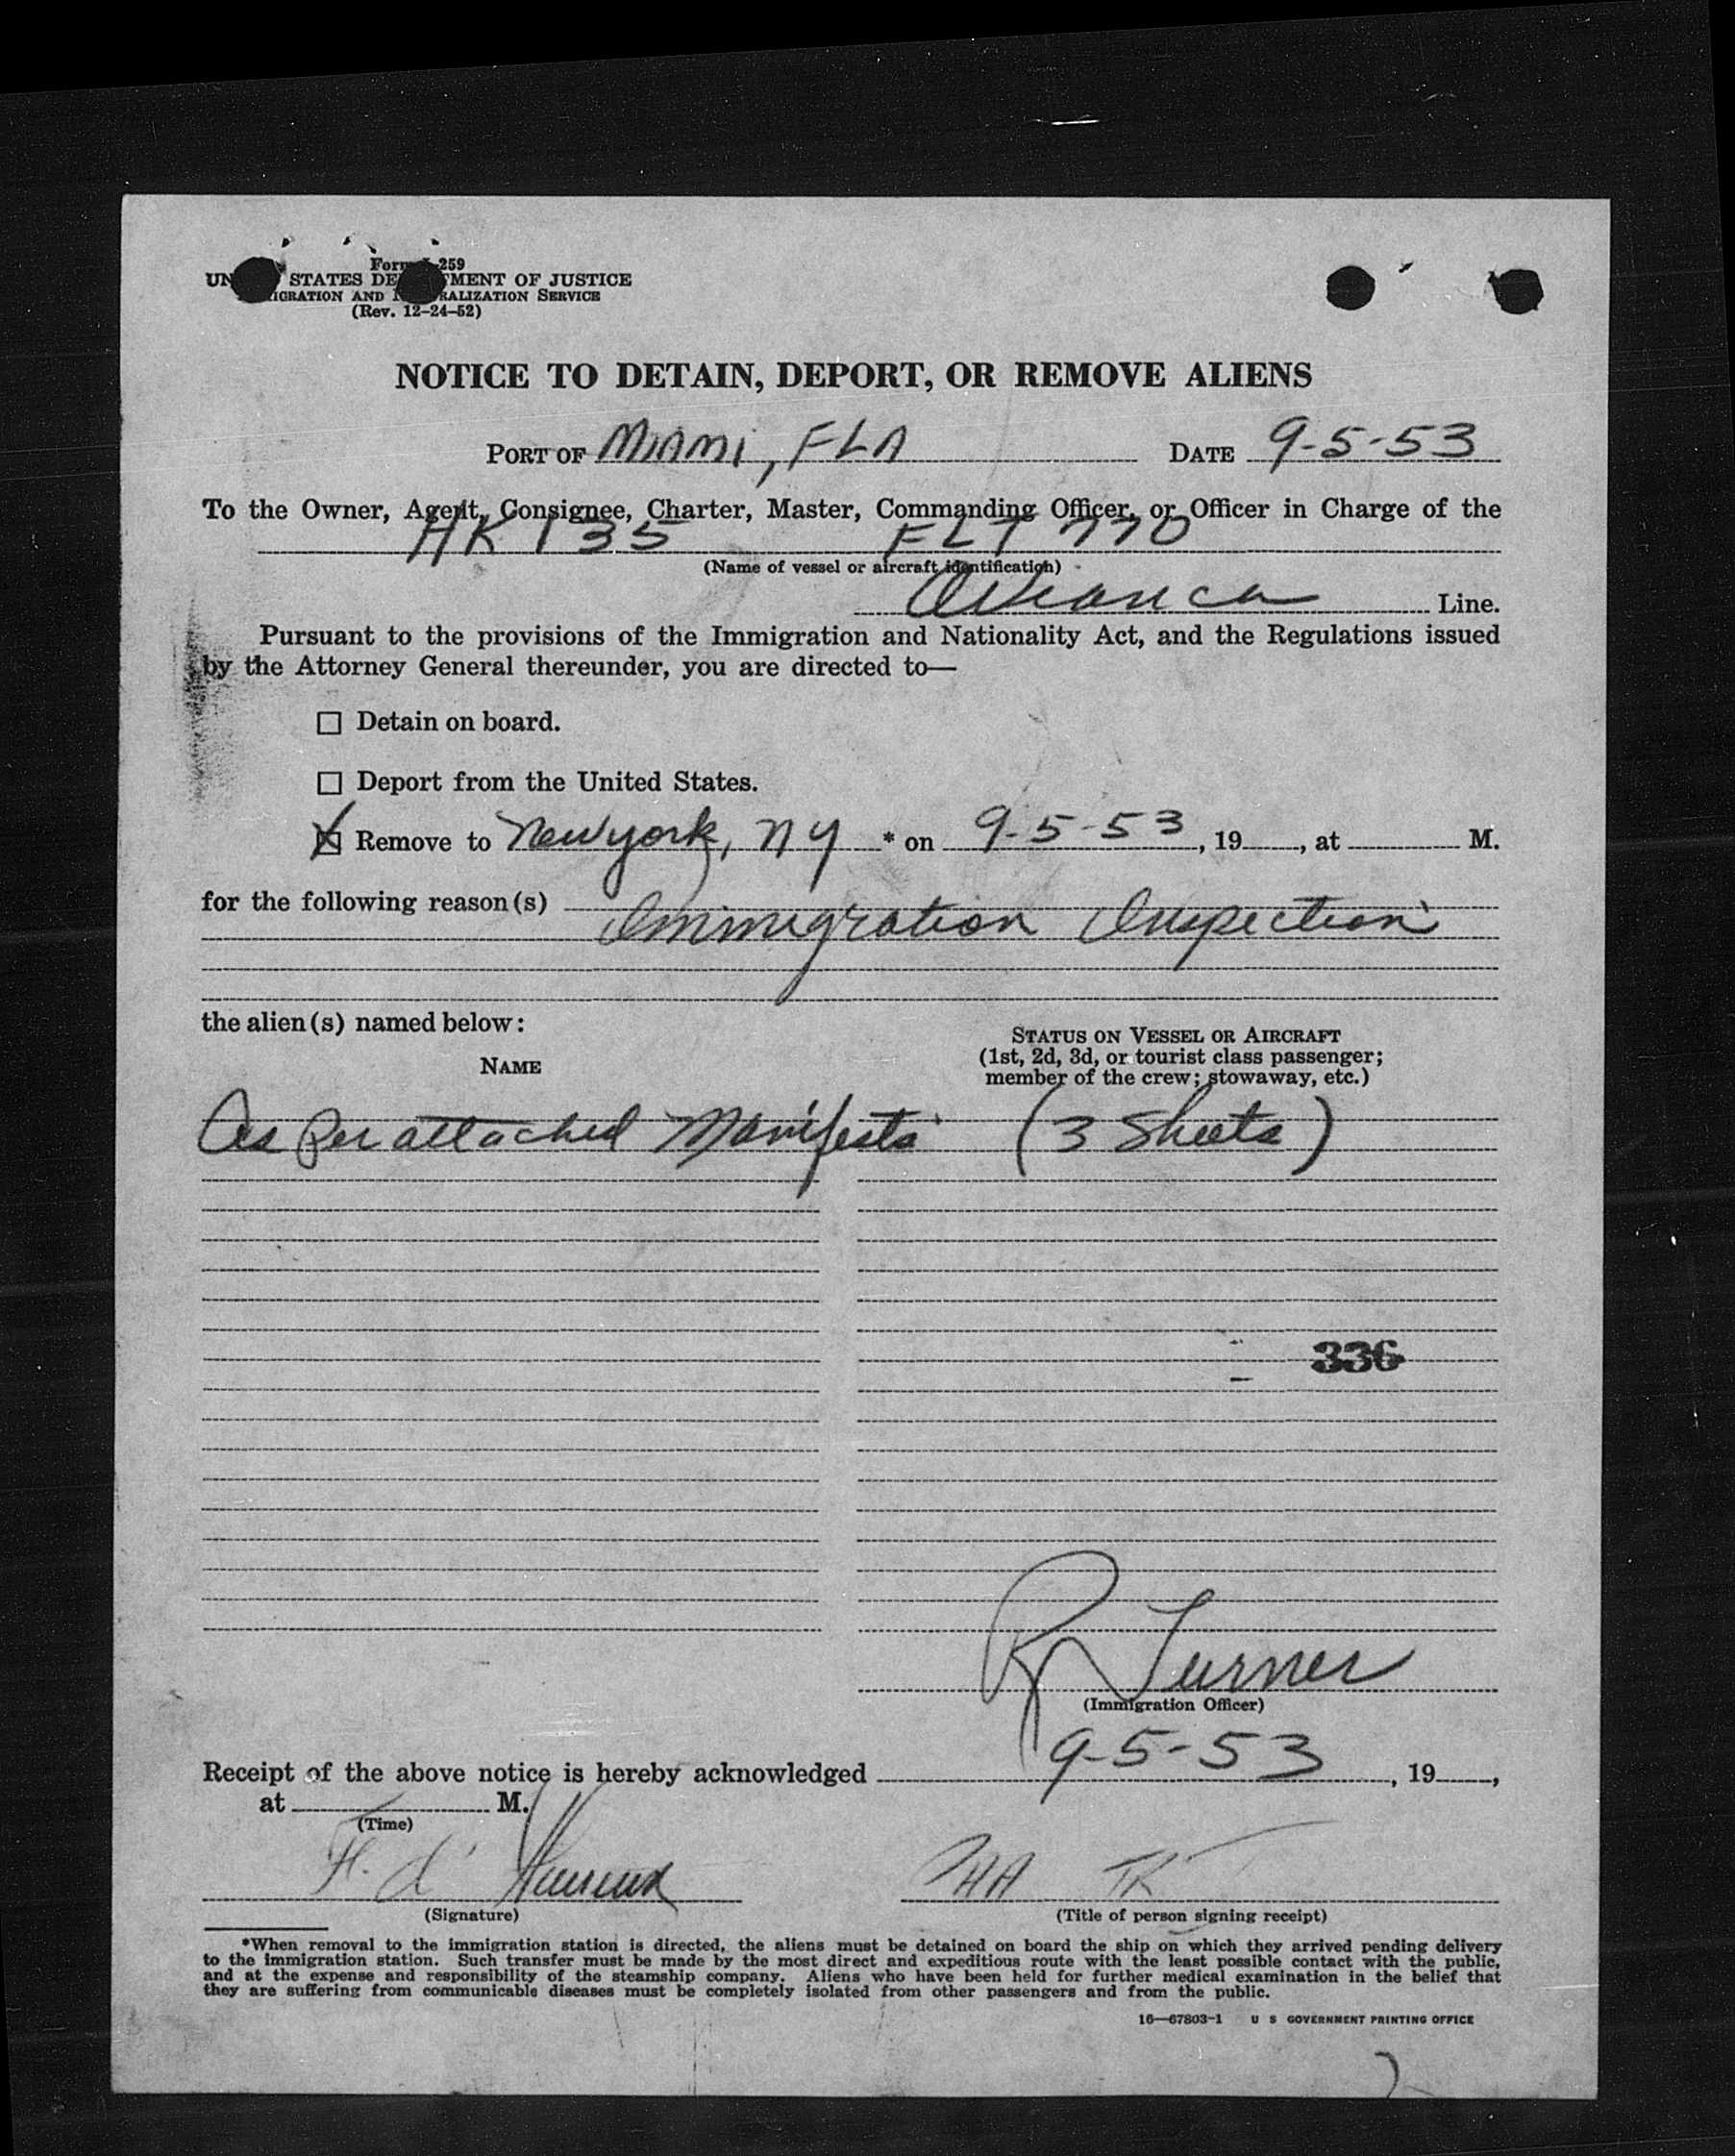 Form I-259
UNITED STATES DEPARTMENT OF JUSTICE
IMMIGRATION AND NATURALIZATION SERVICE
(Rev. 12-24-52)
NOTICE TO DETAIN, DEPORT, OR REMOVE ALIENS
PORT OF MIAMI, FLA DATE 9-5-53
To the Owner, Agent, Consignee, Charter, Master, Commanding Officer, or Officer in Charge of the
HK 135 FLT 770
(Name of vessel or aircraft identification)
Avianca Line.
Pursuant to the provisions of the Immigration and Nationality Act, and the Regulations issued
by the Attorney General thereunder, you are directed to—
☐ Detain on board.
☐ Deport from the United States.
☒ Remove to New York, NY * on 9-5-53, 19___, at ___ M.
for the following reason(s)
Immigration Inspection
the alien(s) named below:
NAME
STATUS ON VESSEL OR AIRCRAFT
(1st, 2d, 3d, or tourist class passenger;
member of the crew; stowaway, etc.)
As per attached Manifests (3 Sheets)
336
R Turner
(Immigration Officer)
Receipt of the above notice is hereby acknowledged 9-5-53, 19___,
at ___ M.
(Time)
F. d'
(Signature)
(Title of person signing receipt)
*When removal to the immigration station is directed, the aliens must be detained on board the ship on which they arrived pending delivery
to the immigration station. Such transfer must be made by the most direct and expeditious route with the least possible contact with the public,
and at the expense and responsibility of the steamship company. Aliens who have been held for further medical examination in the belief that
they are suffering from communicable diseases must be completely isolated from other passengers and from the public.
16—67803-1 U S GOVERNMENT PRINTING OFFICE